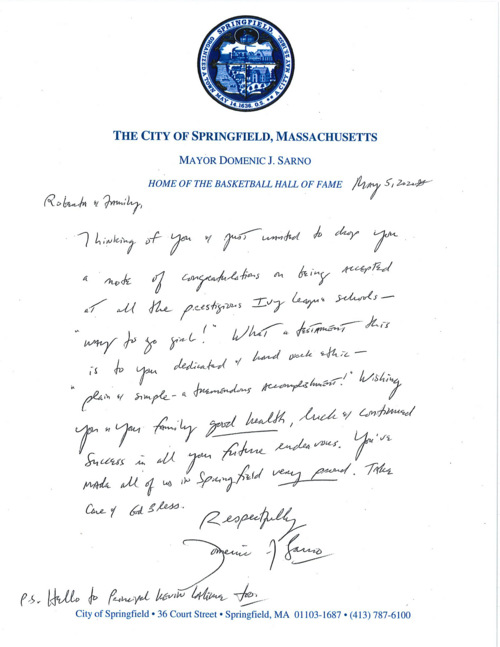 SPRINGFIELD
MAY 14, 1636. O.S.
THE CITY OF SPRINGFIELD, MASSACHUSETTS
MAYOR DOMENIC J. SARNO
HOME OF THE BASKETBALL HALL OF FAME May 5,
& Family,
Thinking of you & just wanted to drop you
a note of congratulations on being accepted
at all the prestigious Ivy League schools –
"way to go girl!" What a testament this
is to you dedicated & hard work ethic –
"plain & simple - a tremendous accomplishment!" Wishing
you & your family good health, luck & continued
success in all your future endeavours. You've
made all of us in Springfield very proud. Take
Care & God Bless.
Respectfully
Domenic J Sarno
P.S. Hello to Principal Kevin too.
City of Springfield • 36 Court Street • Springfield, MA 01103-1687 • (413) 787-6100